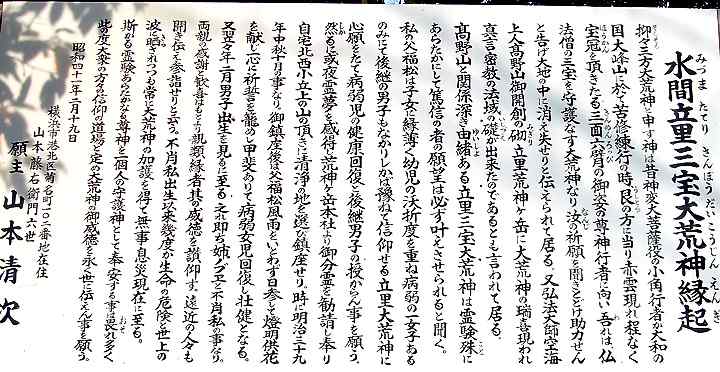 水間立里三宝大荒神縁起
みづま たてり さんぽうだいこうじんえんぎ
抑々三方大荒神と申す神は昔神変大菩薩役の小角行者が大和の
国大峰山に於て苦修練行の時、艮の方に当り赤雲現れ程なく
宝冠を頂きたる三面六臂の御姿の尊神行者に向い、吾れは、仏
法僧の三宝を守護なす大荒神なり 汝の祈願を聞きとどけ助力せん
と告げ大地の中に消え失せりと伝えられて居る。又弘法大師空海
上人高野山御開創の砌 立里荒神ヶ岳に大荒神の瑞喜現われ
真言密教の法城の礎が出来たのであるとも言われて居る。
高野山と関係深き由緒ある立里三宝大荒神は霊験殊に
あらたかにして篤信の者の願望は必ず叶えさせられると聞く。
私の父福松は子女に縁薄く幼児の夭折度を重ね病弱の一女子ある
のみにて後継の男子もなかりしかば豫ねて信仰せる立里大荒神に
心願をたて病弱児の健康回復と後継男子の授からん事を願う、
然るに或夜霊夢を感得、荒神ヶ岳本社より御分霊を勧請し奉り
自宅北西小立上の山の頂きに清浄の地を選び鎮座せり。時に明治三十九
年中秋十月の事なり。御鎮座後は父福松風雨をいとわず日参して燈明供花
を献じ心に祈誓を籠めし甲斐ありて病弱女児回復し壮健となる。
又翌々年二月男子出生を見るに至る。之れ即ち姉ノブエと不肖私の事なり。
両親の感謝と歓喜はもとより親類縁者其の威徳を讃仰す。遠近の人々も
聞き伝え参詣せりと言う。不肖私出生以来幾度か生命の危険と世上の
波に晒されつつも常に大荒神の加護を得て無事息災現在に至る。
斯かる霊験あらたかなる尊神を一個人の守護神として奉安する事は畏れ多く
此の度大衆の方々の信仰の道場と定め大荒神の御威徳を永く世に伝えん事を願う。
昭和四十一年二月十九日
横浜市港北区菊名町一〇二番地在住
山本藤右衛門六世
願主 山本清次